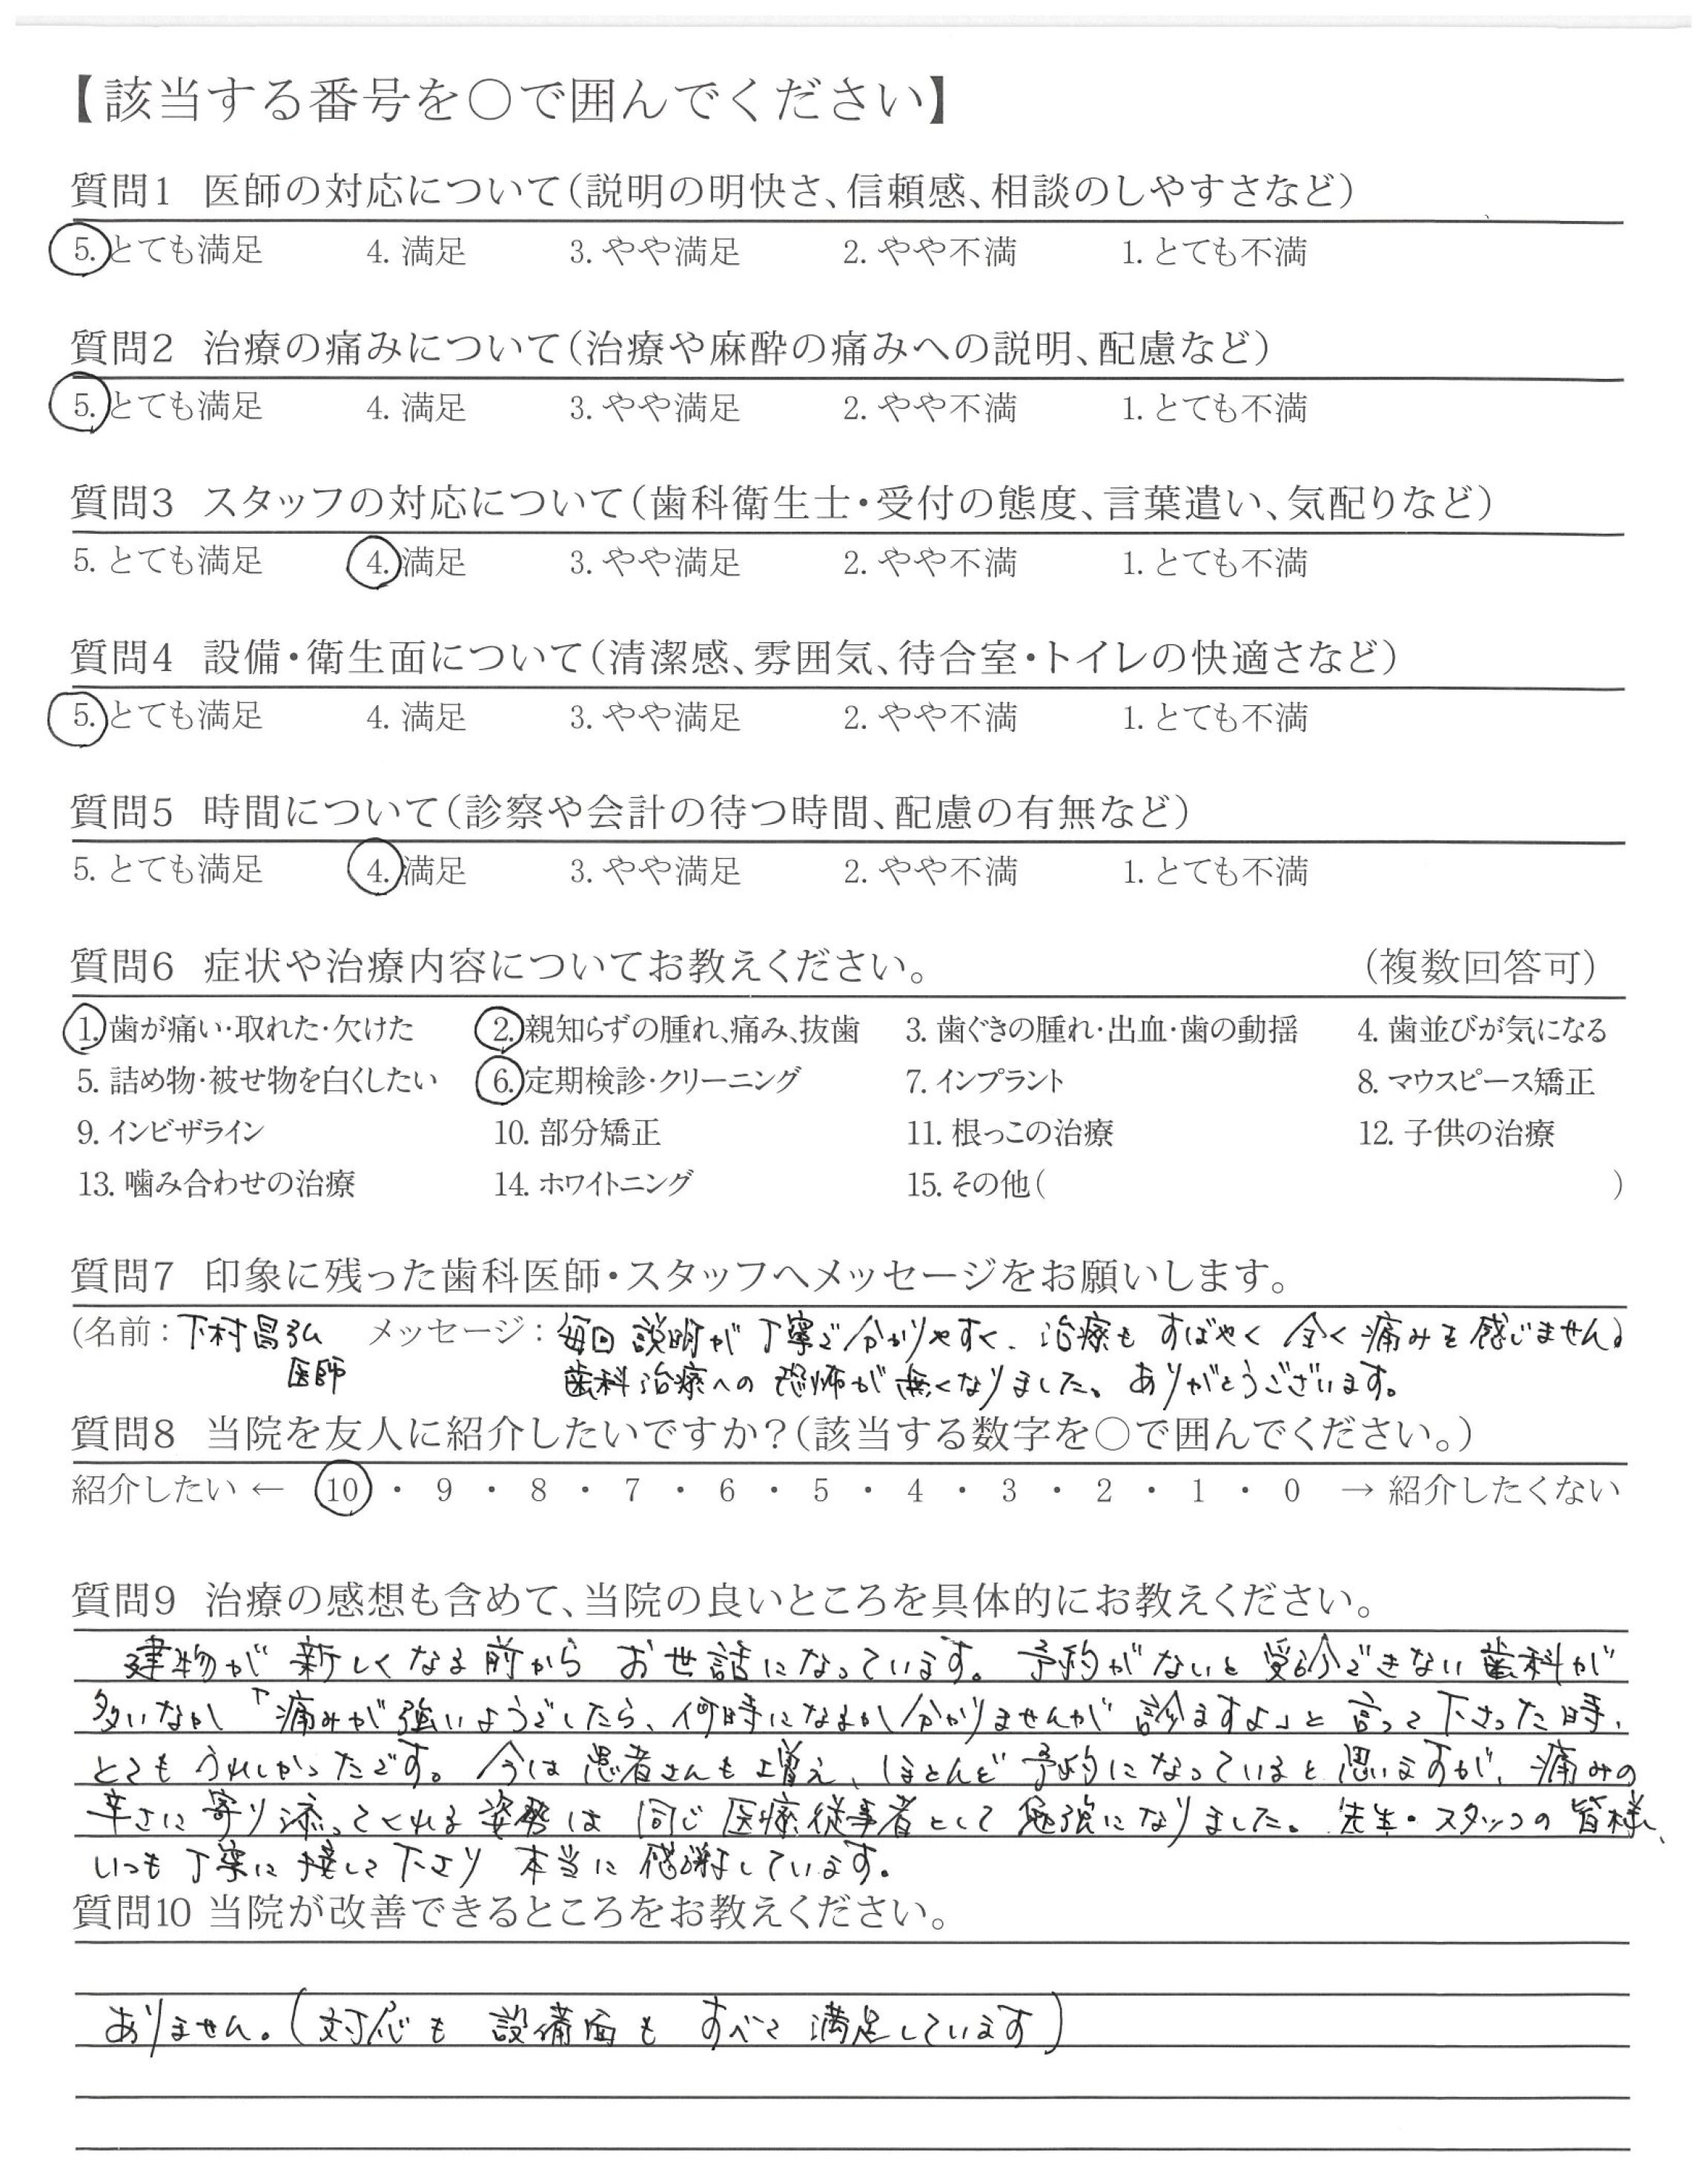 【該当する番号を○で囲んでください】
質問1 医師の対応について(説明の明快さ、信頼感、相談のしやすさなど)
5. とても満足 4. 満足 3. やや満足 2. やや不満 1. とても不満
質問2 治療の痛みについて(治療や麻酔の痛みへの説明、配慮など)
5. とても満足 4. 満足 3. やや満足 2. やや不満 1. とても不満
質問3 スタッフの対応について(歯科衛生士・受付の態度、言葉遣い、気配りなど)
5. とても満足 4. 満足 3. やや満足 2. やや不満 1. とても不満
質問4 設備・衛生面について(清潔感、雰囲気、待合室・トイレの快適さなど)
5. とても満足 4. 満足 3. やや満足 2. やや不満 1. とても不満
質問5 時間について(診察や会計の待つ時間、配慮の有無など)
5. とても満足 4. 満足 3. やや満足 2. やや不満 1. とても不満
質問6 症状や治療内容についてお教えください。 (複数回答可)
1. 歯が痛い・取れた・欠けた 2. 親知らずの腫れ、痛み、抜歯 3. 歯ぐきの腫れ・出血・歯の動揺 4. 歯並びが気になる
5. 詰め物・被せ物を白くしたい 6. 定期検診・クリーニング 7. インプラント 8. マウスピース矯正
9. インビザライン 10. 部分矯正 11. 根っこの治療 12. 子供の治療
13. 噛み合わせの治療 14. ホワイトニング 15. その他( )
質問7 印象に残った歯科医師・スタッフへメッセージをお願いします。
(名前:下村昌弘 メッセージ:毎回説明が丁寧で分かりやすく、治療もすばやく全く痛みを感じません。
医師 歯科治療への恐怖が無くなりました。ありがとうございます。
質問8 当院を友人に紹介したいですか?(該当する数字を○で囲んでください。)
紹介したい ← 10 ・ 9 ・ 8 ・ 7 ・ 6 ・ 5 ・ 4 ・ 3 ・ 2 ・ 1 ・ 0 → 紹介したくない
質問9 治療の感想も含めて、当院の良いところを具体的にお教えください。
建物が新しくなる前からお世話になっています。予約がないと受診できない歯科が
多いなか「痛みが強いようでしたら、何時になるか分かりませんが診ますよ」と言って下さった時、
とてもうれしかったです。今は患者さんも増え、ほとんど予約になっていると思いますが、痛みの
辛さに寄り添ってくれる姿勢は同じ医療従事者として勉強になりました。先生・スタッフの皆様、
いつも丁寧に接して下さり本当に感謝しています。
質問10 当院が改善できるところをお教えください。
ありません。(対応も設備面もすべて満足しています)